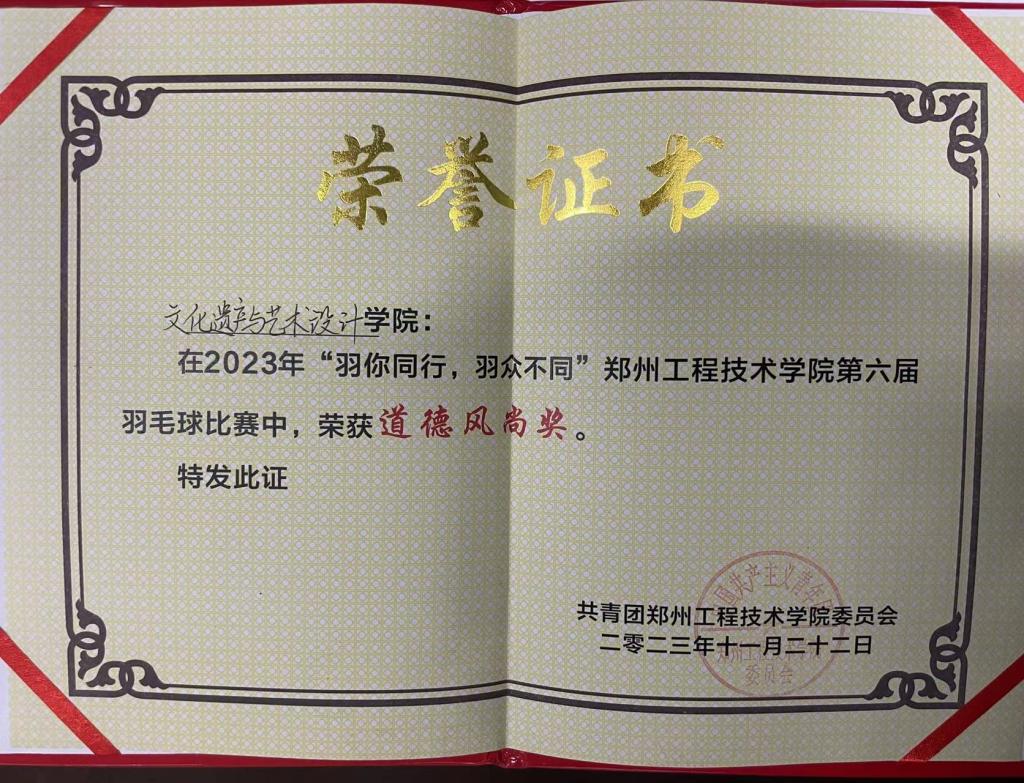 荣誉证书
文化遗产与艺术设计学院：
在2023年“羽你同行，羽众不同”郑州工程技术学院第六届
羽毛球比赛中，荣获道德风尚奖。
特发此证
国共产主义青年
共青团郑州工程技术学院委员会
二零二三年十一月二十二日
委员会